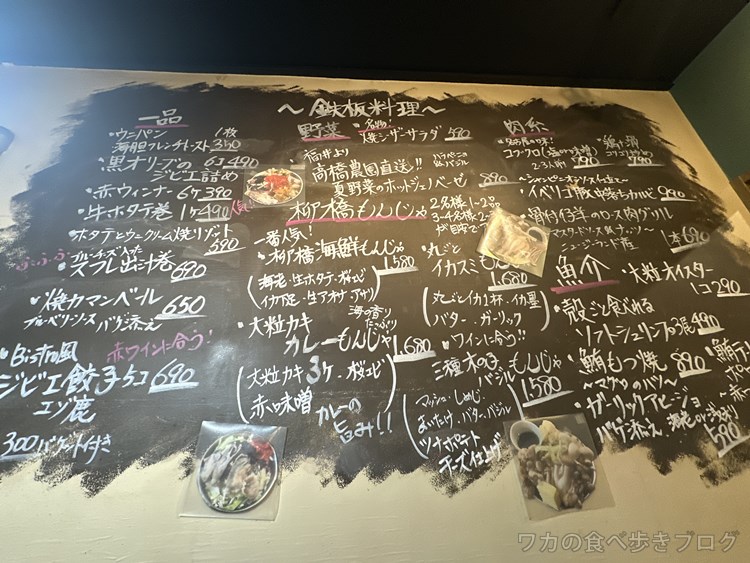 ～鉄板料理～
一品
・ウニパン 1枚
海胆フレンチトースト 350
・黒オリーブの 6コ 490
ジビエ詰め
・赤ウィンナー 6ケ 390
・牛ホタテ巻 1ケ 490 人気
・ホタテとウニクリーム焼リゾット 590
ブルーチーズ入た
ふふふ スフレ出汁巻 690
・焼カマンベール 650
ブルーベリーソース バゲ添え
赤ワインに合う!
ジビエ餃子5コ 690
エゾ鹿
300 バゲット付き
野菜
・名物!
焼シーザーサラダ 490
・福井より
高橋農園直送!!
夏野菜のホットジェノベーゼ 890
柳橋もんじゃ
2名様1〜2コ
3〜4名様2〜3コ
が目安です
一番人気!
・柳橋海鮮もんじゃ 1,580
(海老・生ホタテ・桜エビ
イカ下足・生アオサ・アサリ)
海の香り
たっぷり
・大粒カキ
カレーもんじゃ 1,680
(大粒カキ3ケ・桜エビ
赤味噌 カレーの
旨み!!)
・丸ごと
イカスミもんじゃ 1,680
(丸ごとイカ1杯・イカ墨
バター・ガーリック)
・ワインに合う!!
三種木の子もんじゃ
バジル 1,580
(マッシュ・しめじ
まいたけ・バター・バジル
ツナポテト
チーズ仕上げ)
肉系
790
790
～シャンピニオンソース仕立て～
・イベリコ豚 中落ちカルビ 990
・骨付仔羊のロース肉グリル
マスタードソース
ニュージーランド産 1本 690
魚介
・大粒オイスター
1コ 290
・殻ごと食べれる
ソフトシュリンプの3尾 490
・鮪もつ焼 890
～マグロのハツ～
・ガーリックアヒージョ
バゲ添え 590
ワカの食べ歩きブログ